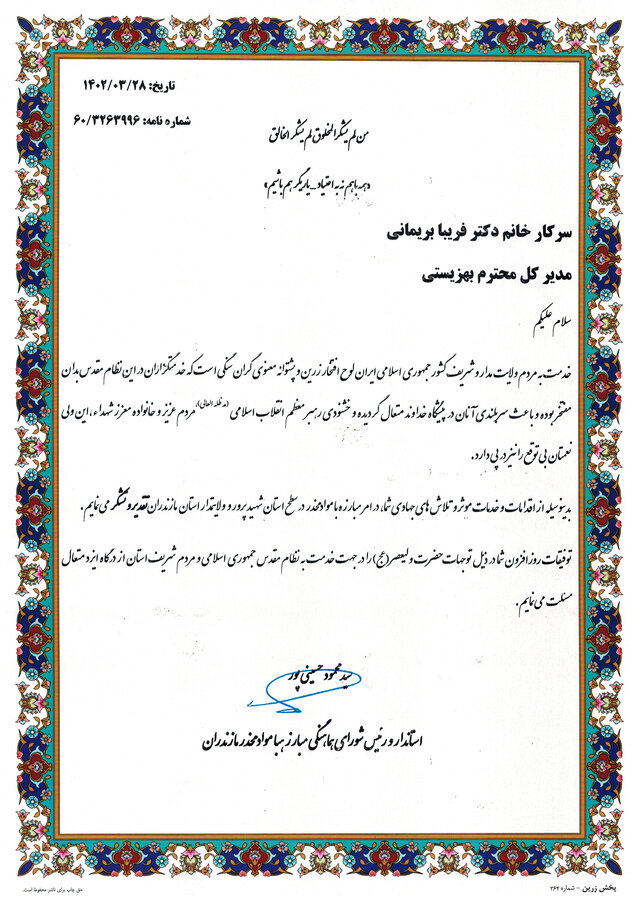 تاریخ: ۱۴۰۲/۰۳/۲۸
شماره نامه: ۶۰/۳۲۶۳۹۹۶
من لم یشکر المخلوق لم یشکر الخالق
«همه باهم نه به اعتیاد - یاریگر هم باشیم»
سرکار خانم دکتر فریبا بریمانی
مدیر کل محترم بهزیستی
سلام علیکم
خدمت به مردم ولایت مدار و شریف کشور جمهوری اسلامی ایران لوح افتخار زرین و پشتوانه معنوی گران سنگی است که خدمتگزاران در این نظام مقدس بدان
مفتخر بوده و باعث سربلندی آنان در پیشگاه خداوند متعال گردیده و خشنودی رهبر معظم انقلاب اسلامی (مدظله العالی)، مردم عزیز و خانواده معزز شهداء، این ولی
نعمتان بی توقع را نیز در پی دارد.
بدینوسیله از اقدامات و خدمات موثر و تلاش های جهادی شما، در امر مبارزه با موادمخدر در سطح استان شهیدپرور و ولایتمدار استان مازندران تقدیر و تشکر می نمایم.
توفیقات روز افزون شما در ذیل توجهات حضرت ولیعصر(عج) را در جهت خدمت به نظام مقدس جمهوری اسلامی و مردم شریف استان از درگاه ایزد متعال
مسئلت می نمایم.
سید محمود حسینی پور
استاندار و رئیس شورای هماهنگی مبارزه با موادمخدر مازندران
پخش زرین - شماره ۲۶۴
حق چاپ برای ناشر محفوظ است.